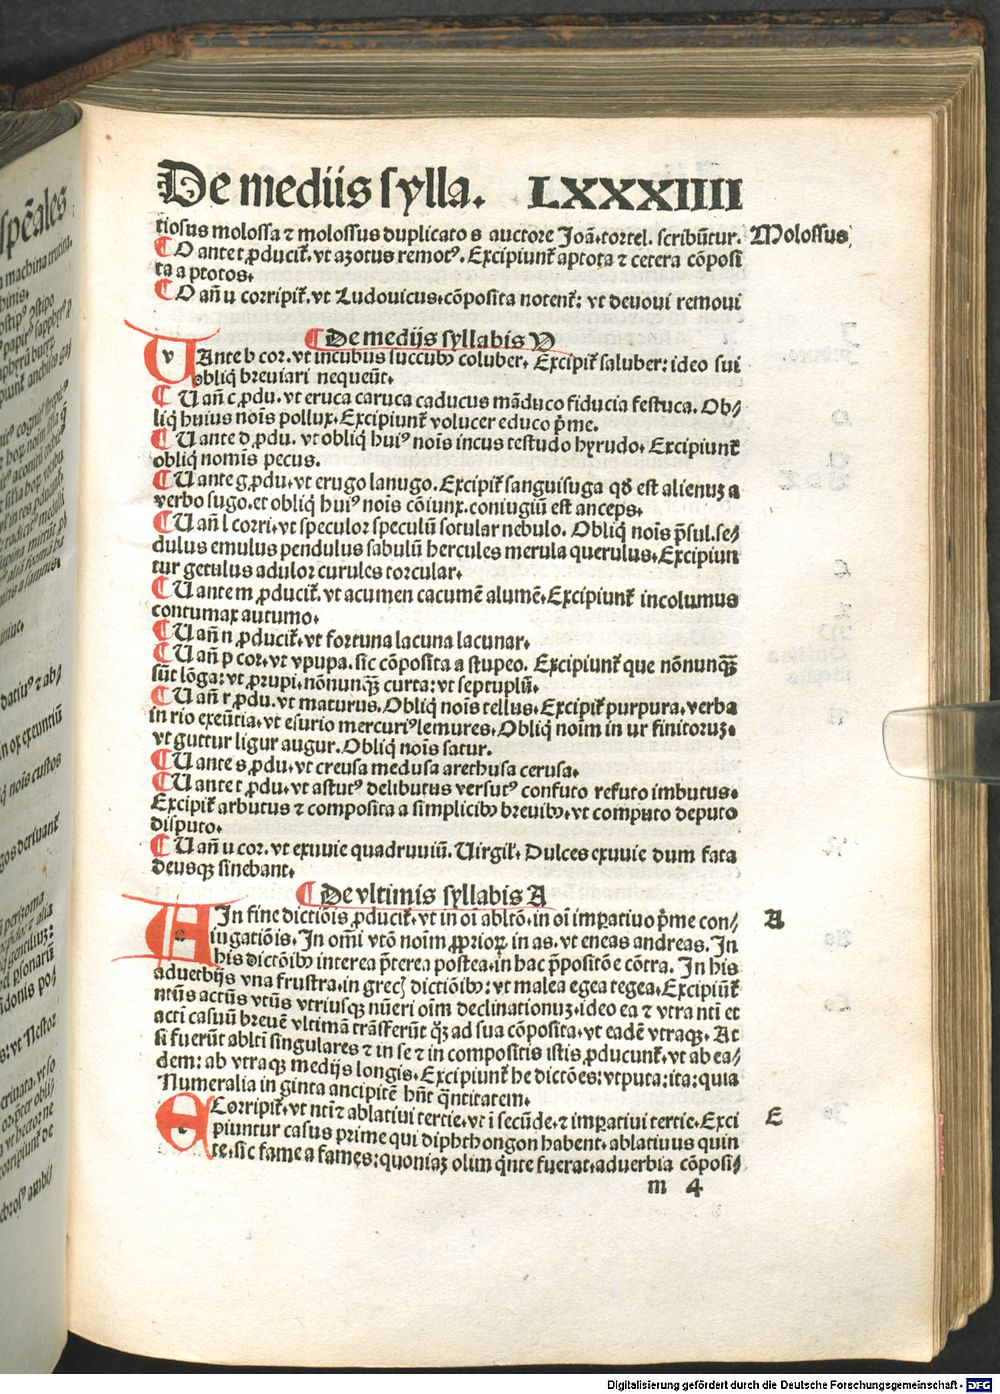 De mediis sylla. LXXXIIII
tiosus molossa ⁊ molossus duplicato s auctore Joā. tortel. scribūtur. Molossus
¶ O ante t ꝓduciť. vt azotus remotꝰ. Excipiunť aptota ⁊ cetera cōposi
ta a ptotos.
¶ O añ u corripiť. vt Ludouicus. cōposita notenť: vt deuoui remoui
¶ De medijs syllabis V
v Ante b cor. vt incubus succubꝰ coluber. Excipiť saluber: ideo sui
obliq̄ breuiari nequeūt.
¶ U añ c ꝓdu. vt eruca caruca caducus māduco fiducia festuca. Ob⸗
liq̄ huius noīs pollux. Excipiunť volucer educo p̄me.
¶ U ante d ꝓdu. vt obliq̄ huiꝰ noīs incus testudo hyrudo. Excipiunť
obliq̄ nomīs pecus.
¶ U ante g ꝓdu. vt erugo lanugo. Excipiť sanguisuga qđ est alienuꝫ a
verbo sugo. et obliq̄ huiꝰ noīs cōiunx. coniugiū est anceps.
¶ U añ l corri. vt speculor speculū sotular nebulo. Obliq̄ noīs p̄sul. se⸗
dulus emulus pendulus sabulū hercules merula querulus. Excipiun
tur getulus adulor curules torcular.
¶ U ante m ꝓduciť. vt acumen cacumē alumē. Excipiunť incolumus
contumax autumo.
¶ U añ n ꝓduciť. vt fortuna lacuna lacunar.
¶ U añ p cor. vt vpupa. sic cōposita a stupeo. Excipiunť que nōnunꝗ̄
sūt lōga: vt ꝓrupi. nōnunꝗ̄ curta: vt septuplū.
¶ U añ r ꝓdu. vt maturus. Obliq̄ noīs tellus. Excipiť purpura. verba
in rio exeūtia. vt esurio mercuriꝰ lemures. Obliq̄ noīm in ur finitoruꝫ.
vt guttur ligur augur. Obliq̄ noīs satur.
¶ U ante s ꝓdu. vt creusa medusa arethusa cerusa.
¶ U ante t ꝓdu. vt astutꝰ delibutus versutꝰ confuto refuto imbutus.
Excipiť arbutus ⁊ composita a simplicibꝰ breuibꝰ. vt computo deputo
disputo.
¶ U añ u cor. vt exuuie quadruuiū. Uirgiľ. Dulces exuuie dum fata
deusqꝫ sinebant.
¶ De vltimis syllabis A
A In fine dictiōis ꝓduciť. vt in oī abltō. in oī impatiuo p̄me con⸗ A
iugatiōis. In omī vtō noīm ꝓprioꝝ in as. vt eneas andreas. In
his dictōibꝰ interea p̄terea postea. in hac p̄positōe cōtra. In his
aduerbijs vna frustra. in grecꝭ dictiōibꝰ: vt malea egea tegea. Excipiūť
ntūs actūs vtūs vtriusqꝫ nūeri oīm declinationuꝫ. ideo ea ⁊ vtra ntī et
actī casuū breuē vltimā trāsferūt qꝫ ad sua cōposita. vt eadē vtraqꝫ. At
si fuerūt abltī singulares ⁊ in se ⁊ in compositis istis ꝓducunť. vt ab ea⸗
dem: ab vtraqꝫ medijs longis. Excipiunť he dictōes: vtputa: ita: quia
Numeralia in ginta ancipitē hn̄t q̄ntitatem.
E Corripiť. vt ntī ⁊ ablatiui tertie. vt i secūde. ⁊ impatiui tertie. Exci E
piuntur casus prime qui diphthongon habent. ablatiuus quin
te. sic fame a fames: quoniaꝫ olim q̄nte fuerat. aduerbia cōposi⸗
m 4
Digitalisierung gefördert durch die Deutsche Forschungsgemeinschaft - DFG